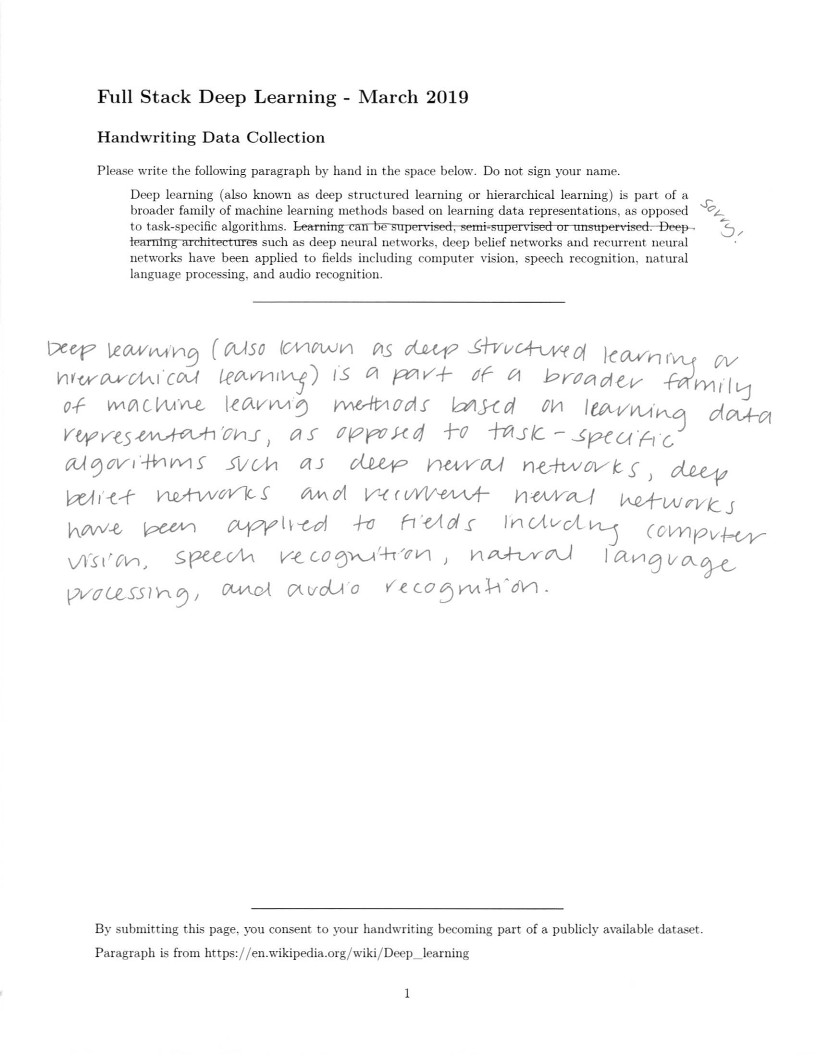 Full Stack Deep Learning - March 2019
Handwriting Data Collection
Please write the following paragraph by hand in the space below. Do not sign your name.
Deep learning (also known as deep structured learning or hierarchical learning) is part of a
broader family of machine learning methods based on learning data representations, as opposed
to task-specific algorithms. Learning can be supervised, semi-supervised or unsupervised. Deep
learning architectures such as deep neural networks, deep belief networks and recurrent neural
networks have been applied to fields including computer vision, speech recognition, natural
language processing, and audio recognition.
sorry!
Deep learning (also known as deep structured learning or
hierarchical learning) is a part of a broader family
of machine learnig methods based on learning data
representations, as opposed to task-specific
algorithms such as deep neural networks, deep
belief networks and recurrent neural networks
have been applied to fields includng computer
vision, speech recognition, natural language
processing, and audio recognition.
By submitting this page, you consent to your handwriting becoming part of a publicly available dataset.
Paragraph is from https://en.wikipedia.org/wiki/Deep_learning
1